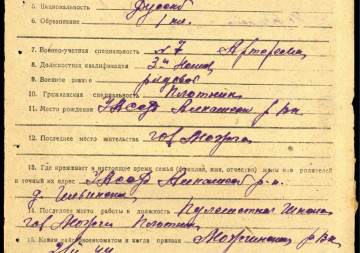 5. Национальность Русский
6. Образование 1 кл.
7. Военно-учетная специальность №7 Артгрема
8. Должностная квалификация 3й Номер
9. Военное звание рядовой
10. Гражданская специальность Плотник
11. Место рождения УАССР Алнашский р-н
12. Последнее место жительства гор Можга
13. Где проживает в настоящее время семья (фамилия, имя, отчество) жены или родителей
и точный их адрес УАССР Алнашский р-н.
д.
14. Последнее место работы и должность Пулеметная школа
гор Можги Плотник
15. Каким райвоенкоматом и когда призван Можгинским р Вк